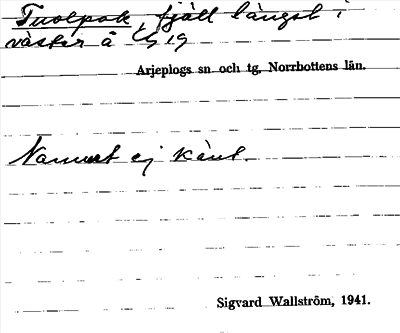 Tuolpok, fjäll längst i
väster å Eg 19
Arjeplogs sn och tg, Norrbottens län.
Namnet ej känt.
Sigvard Wallström, 1941.